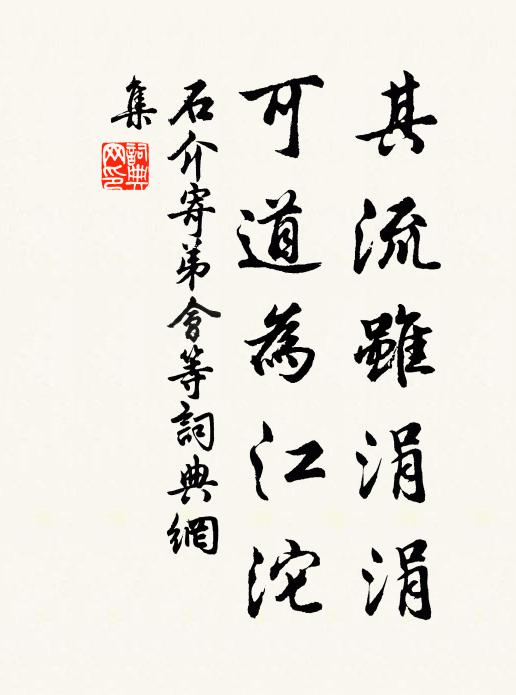 其流雖涓涓
可道為江沱
石介寄弟會等詞典網
集
詞典
网印